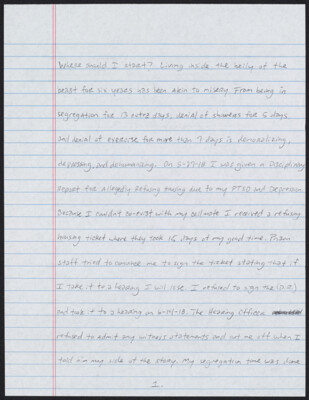 Where should I start? Living inside the belly of the
beast for six years has been akin to misery. From being in
segregation for 13 extra days, denial of showers for 5 days
and denial of exercise for more than 7 days is demoralizing,
depressing, and dehumanizing. On 5-27-18 I was given a Disciplinary
Report for allegedly Refusing Housing due to my PTSD and Depression
Because I couldn't co-exist with my cellmate I received a refusing
housing ticket where they took 15 days of my good time. Prison
staff tried to convince me to sign the ticket stating that if
I take it to a hearing I will lose. I refused to sign the (D.R)
and took it to a hearing on 6-05-18. The Hearing Officer
refused to admit any witness statements and cut me off when I
told him my side of the story. My segregation time was done
1.